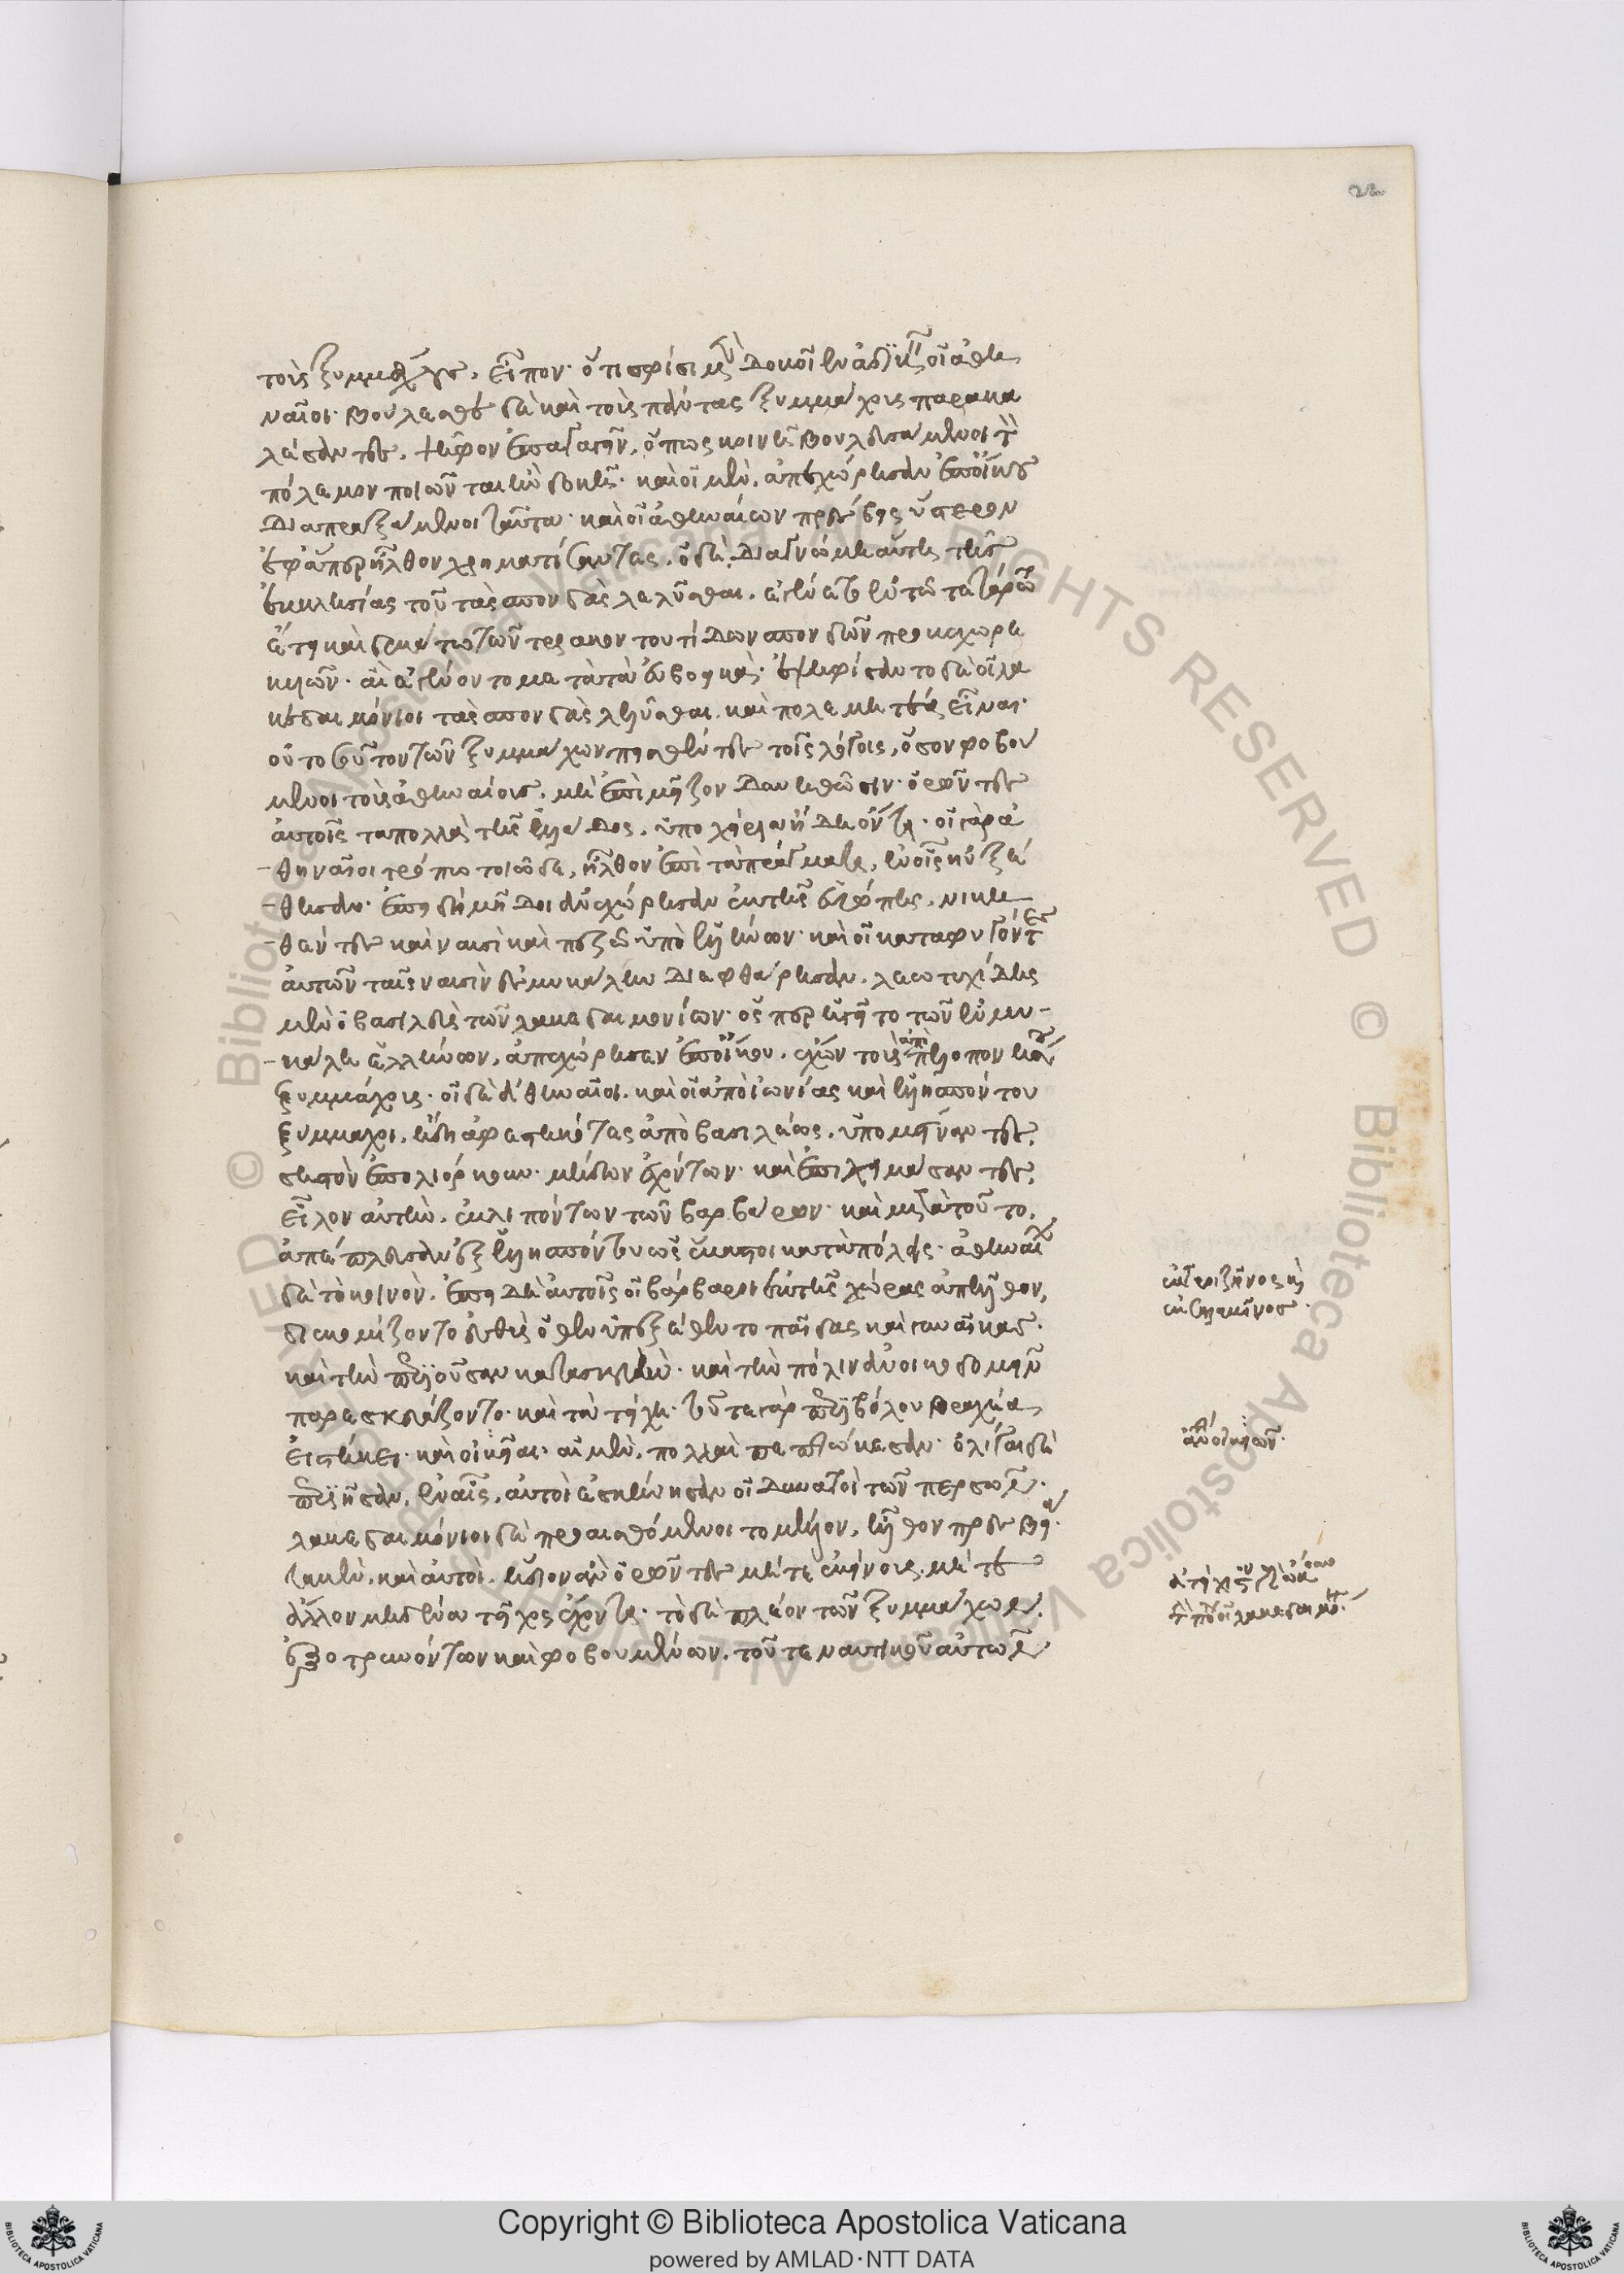 22
τοὺς ξυμμάχους, εἶπον· ὅτι σφίσι μὲν δοκοῖεν ἀδικεῖν οἱ ἀθη
ναῖοι· βούλεσθαι δὲ καὶ τοὺς πάντας ξυμμάχους παρακα
λέσαντες, ψῆφον ἐπαγαγεῖν, ὅπως κοινῇ βουλευσάμενοι τὸν
πόλεμον ποιῶνται ἢν δοκῇ· καὶ οἱ μὲν, ἀπεχώρησαν ἐπ᾽ οἴκου
διαπραξάμενοι ταῦτα· καὶ οἱ ἀθηναίων πρέσβεις ὕστερον
ἐφ᾽ ἅπερ ἦλθον χρηματίσαντες. ἡ δὲ διαγνώμη αὕτη τῆς
ἐκκλησίας τοῦ τὰς σπονδὰς λελύσθαι, ἐγένετο ἐν τῷ τετάρτῳ
ἔτει καὶ δεκάτῳ τῶν τριακοντουτίδων σπονδῶν προκεχωρη
κυιῶν· αἳ ἐγένοντο μετὰ τὰ εὐβοϊκά· ἐψηφίσαντο δὲ οἱ λα
κεδαιμόνιοι τὰς σπονδὰς λελύσθαι, καὶ πολεμητέα εἶναι·
οὐ τοσοῦτον τῶν ξυμμάχων πεισθέντες τοῖς λόγοις, ὅσον φοβού
μενοι τοὺς ἀθηναίους, μὴ ἐπὶ μεῖζον δυνηθῶσιν· ὁρῶντες
αὐτοῖς τὰ πολλὰ τῆς ἑλλάδος, ὑποχείρια ἤδη ὄντα· οἱ γὰρ ἀ
-θηναῖοι τρόπῳ τοιῷδε, ἦλθον ἐπὶ τὰ πράγματα, ἐν οἷς ηὐξή
-θησαν· ἐπειδὴ μῆδοι ἀνεχώρησαν ἐκ τῆς εὐρώπης, νικη
-θέντες καὶ ναυσὶ καὶ πεζῷ ὑπὸ ἑλλήνων· καὶ οἱ καταφυγόντες
αὐτῶν ταῖς ναυσὶν ἐς μυκάλην διεφθάρησαν. λεωτυχίδης
μὲν ὁ βασιλεὺς τῶν λακεδαιμονίων· ὅσπερ ἡγεῖτο τῶν ἐν μυ-
-κάλῃ ἑλλήνων, ἀπεχώρησεν ἐπ᾽ οἴκου, ἔχων τοὺς ἀπὸ πελοποννήσου
ξυμμάχους· οἱ δὲ ἀθηναῖοι, καὶ οἱ ἀπὸ ἰωνίας καὶ ἑλλησπόντου
ξύμμαχοι, ἤδη ἀφεστηκότες ἀπὸ βασιλέως, ὑπομείναντες,
σηστὸν ἐπολιόρκουν· μήδων ἐχόντων· καὶ ἐπιχειμάσαντες,
εἷλον αὐτὴν, ἐκλιπόντων τῶν βαρβάρων· καὶ μετὰ τοῦτο,
ἀπέπλευσαν ἐξ ἑλλησπόντου ὡς ἕκαστοι κατὰ πόλεις· ἀθηναίων
δὲ τὸ κοινὸν, ἐπειδὴ αὐτοῖς οἱ βάρβαροι ἐκ τῆς χώρας ἀπῆλθον,
διεκομίζοντο εὐθὺς ὅθεν ὑπεξέθεντο παῖδας καὶ γυναῖκας·
καὶ τὴν περιοῦσαν κατασκευὴν· καὶ τὴν πόλιν ἀνοικοδομεῖν
παρεσκευάζοντο· καὶ τὰ τείχη· τοῦ τε γὰρ περιβόλου βραχέα
εἱστήκει· καὶ οἰκίαι· αἱ μὲν, πολλαὶ πεπτώκεσαν· ὀλίγαι δὲ
περιῆσαν, ἐν αἷς, αὐτοὶ ἐσκήνησαν οἱ δυνατοὶ τῶν περσῶν·
λακεδαιμόνιοι δὲ προαισθόμενοι τὸ μέλλον, ἦλθον πρεσβείᾳ·
τὰ μὲν, καὶ αὐτοὶ, ἥδιον ἂν ὁρῶντες μήτε ἐκείνους, μήτε
ἄλλον μηδένα τεῖχος ἔχοντα· τὸ δὲ πλέον τῶν ξυμμάχων,
ἐξοτρυνόντων καὶ φοβουμένων, τοῦ τε ναυτικοῦ αὐτῶν
Copyright © Biblioteca Apostolica Vaticana
powered by AMLAD·NTT DATA